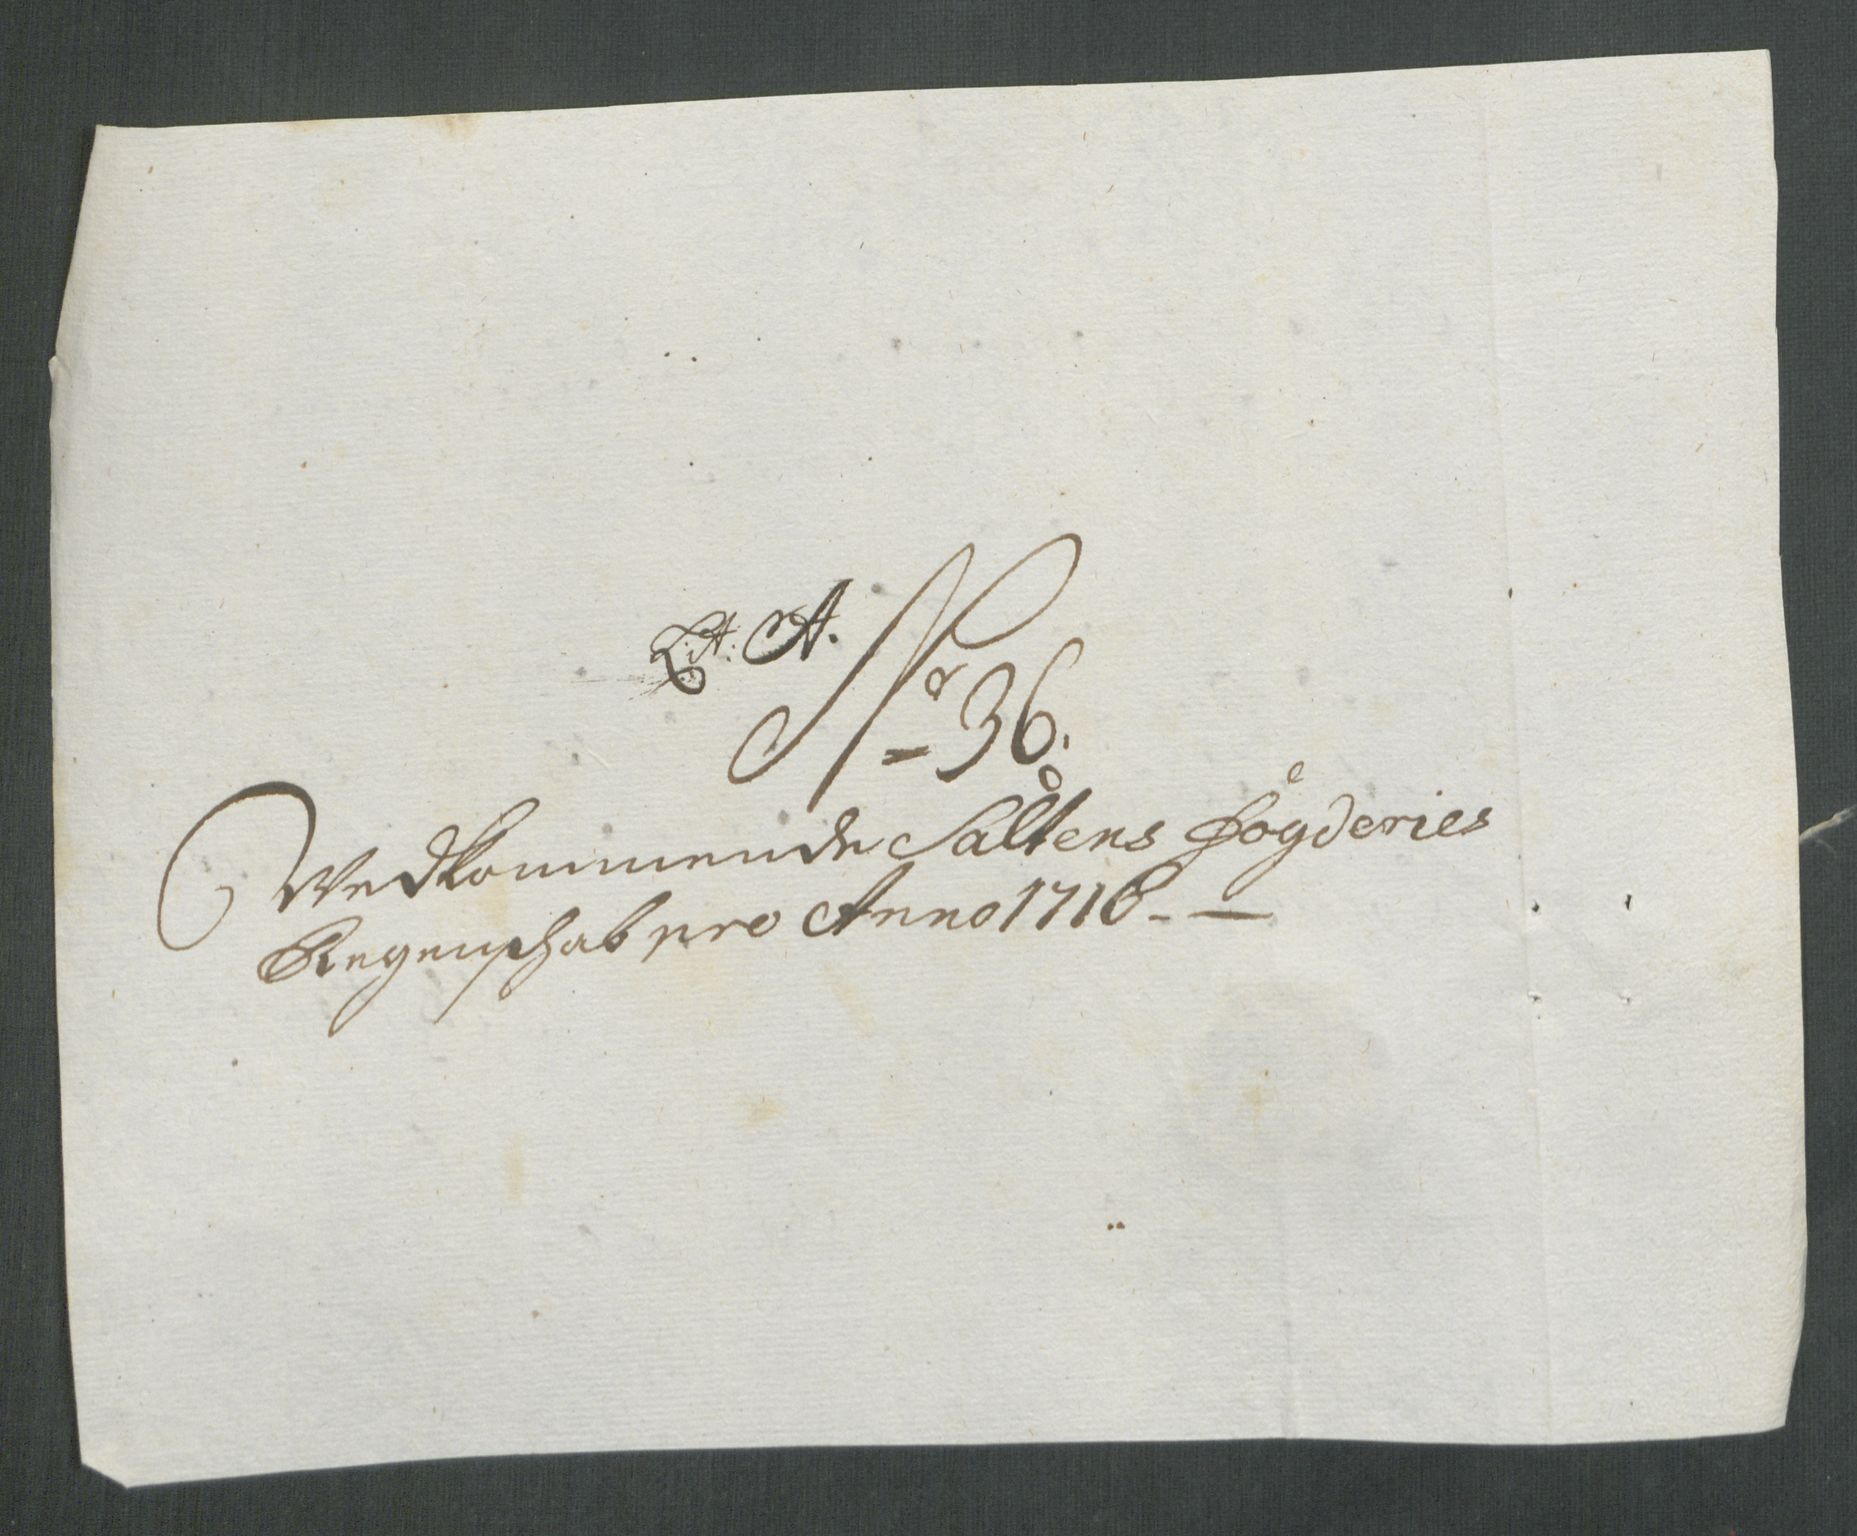 Lit: A.
No 36.
Vedkommende Saltens fogderies
Regenschab pro Anno 1716 -